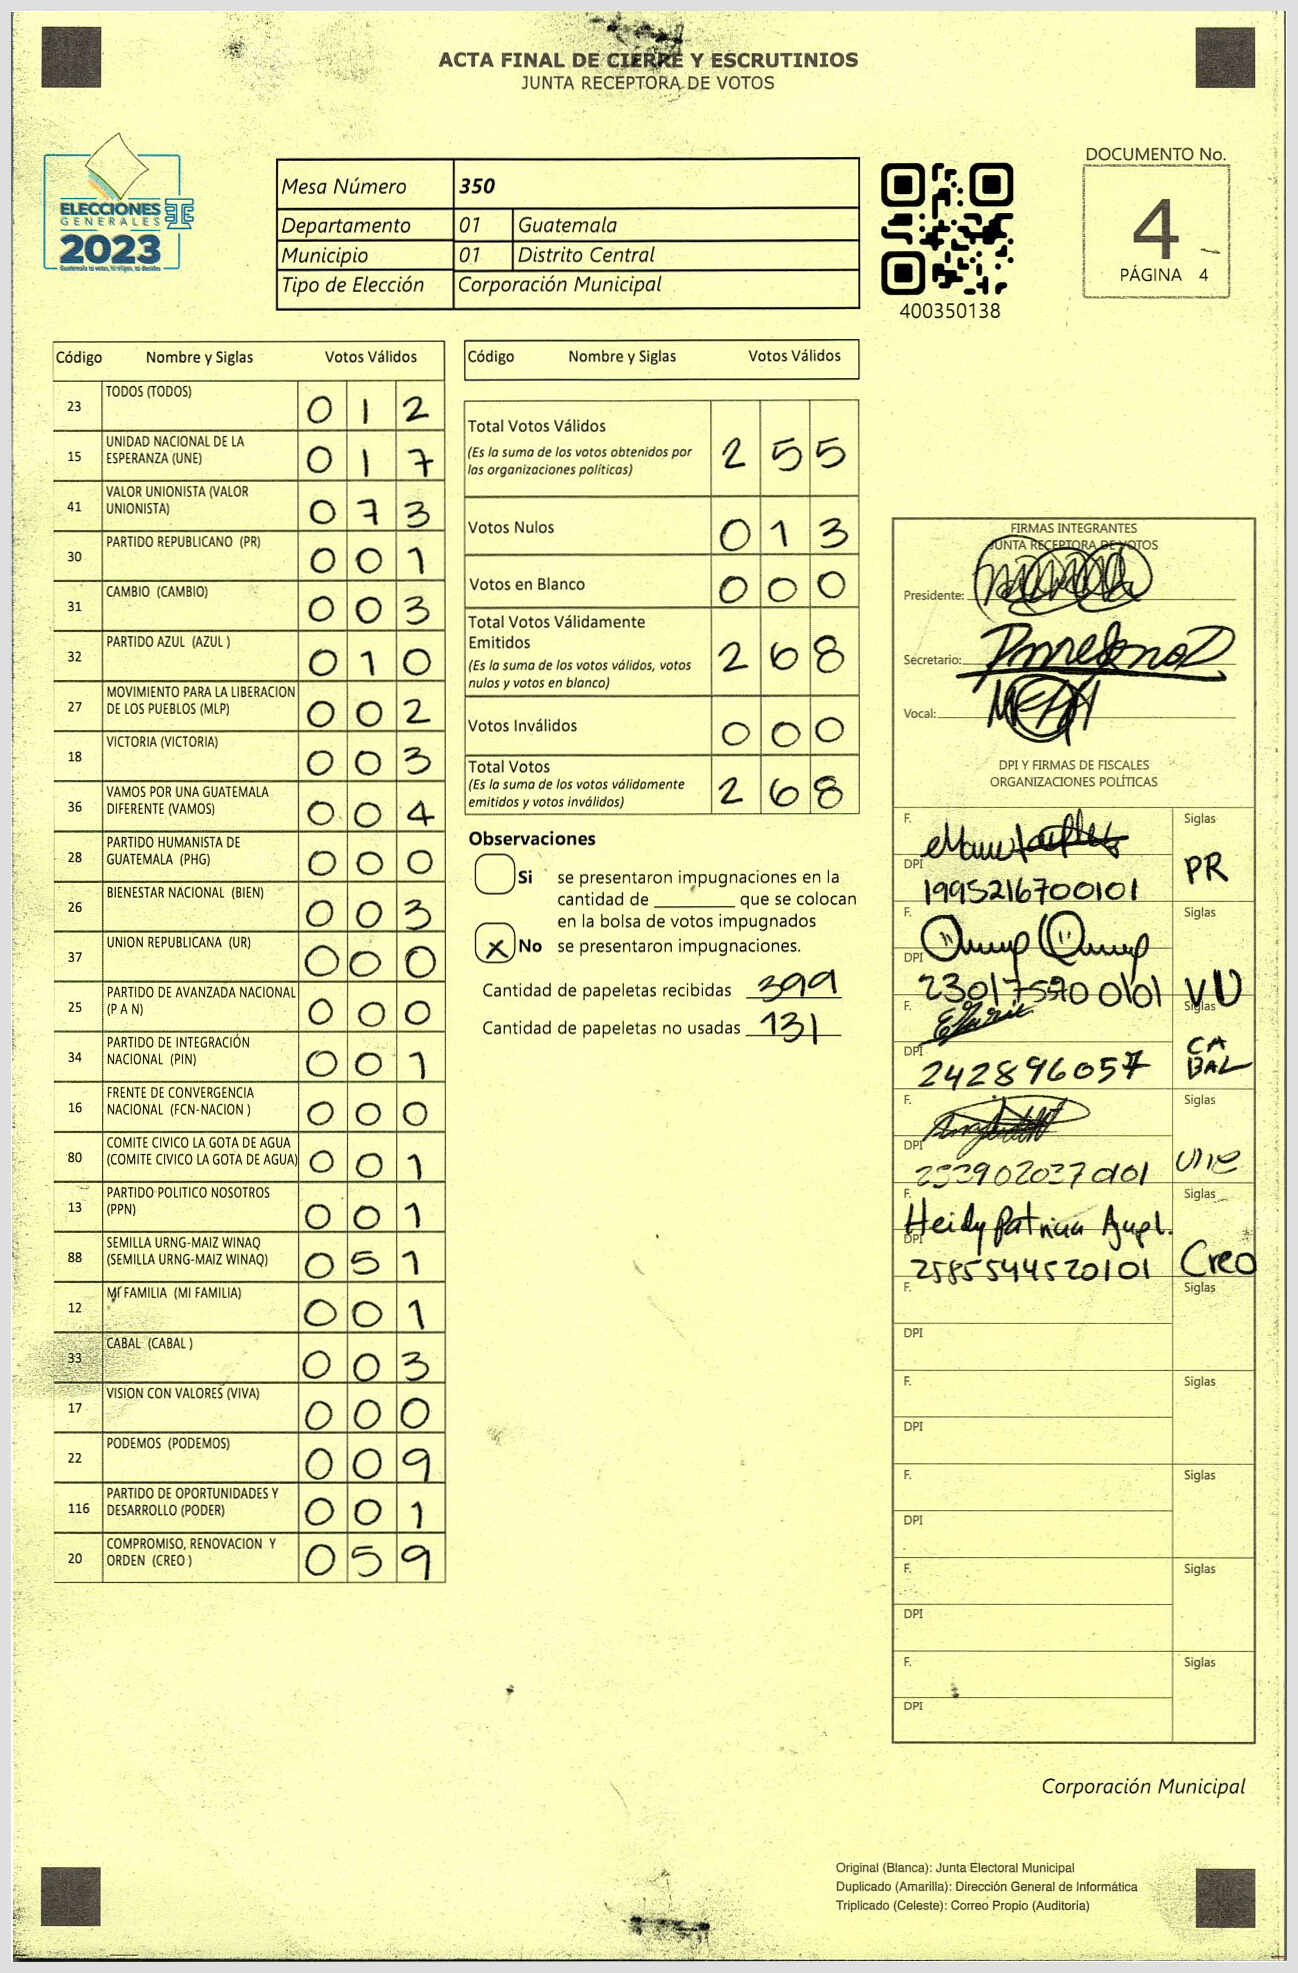 ACTA FINAL DE CIERRE Y ESCRUTINIOS
JUNTA RECEPTORA DE VOTOS
ELECCIONES
GENERALES
2023
Mesa Número 350
Departamento 01 Guatemala
Municipio 01 Distrito Central
Tipo de Elección Corporación Municipal
400350138
DOCUMENTO No.
4
PÁGINA 4
Código Nombre y Siglas Votos Válidos
23 TODOS (TODOS) 0 1 2
15 UNIDAD NACIONAL DE LA ESPERANZA (UNE) 0 1 7
41 VALOR UNIONISTA (VALOR UNIONISTA) 0 7 3
30 PARTIDO REPUBLICANO (PR) 0 0 1
31 CAMBIO (CAMBIO) 0 0 3
32 PARTIDO AZUL (AZUL ) 0 1 0
27 MOVIMIENTO PARA LA LIBERACION DE LOS PUEBLOS (MLP) 0 0 2
18 VICTORIA (VICTORIA) 0 0 3
36 VAMOS POR UNA GUATEMALA DIFERENTE (VAMOS) 0 0 4
28 PARTIDO HUMANISTA DE GUATEMALA (PHG) 0 0 0
26 BIENESTAR NACIONAL (BIEN) 0 0 3
37 UNION REPUBLICANA (UR) 0 0 0
25 PARTIDO DE AVANZADA NACIONAL (P A N) 0 0 0
34 PARTIDO DE INTEGRACIÓN NACIONAL (PIN) 0 0 1
16 FRENTE DE CONVERGENCIA NACIONAL (FCN-NACION ) 0 0 0
80 COMITE CIVICO LA GOTA DE AGUA (COMITE CIVICO LA GOTA DE AGUA) 0 0 1
13 PARTIDO POLITICO NOSOTROS (PPN) 0 0 1
88 SEMILLA URNG-MAIZ WINAQ (SEMILLA URNG-MAIZ WINAQ) 0 5 1
12 MI FAMILIA (MI FAMILIA) 0 0 1
33 CABAL (CABAL ) 0 0 3
17 VISION CON VALORES (VIVA) 0 0 0
22 PODEMOS (PODEMOS) 0 0 9
116 PARTIDO DE OPORTUNIDADES Y DESARROLLO (PODER) 0 0 1
20 COMPROMISO, RENOVACION Y ORDEN (CREO ) 0 5 9
Código Nombre y Siglas Votos Válidos
Total Votos Válidos 2 5 5
(Es la suma de los votos obtenidos por
las organizaciones políticas)
Votos Nulos 0 1 3
Votos en Blanco 0 0 0
Total Votos Válidamente
Emitidos 2 6 8
(Es la suma de los votos válidos, votos
nulos y votos en blanco)
Votos Inválidos 0 0 0
Total Votos 2 6 8
(Es la suma de los votos válidamente
emitidos y votos inválidos)
Observaciones
Si se presentaron impugnaciones en la
cantidad de ________ que se colocan
en la bolsa de votos impugnados
X No se presentaron impugnaciones.
Cantidad de papeletas recibidas 399
Cantidad de papeletas no usadas 131
FIRMAS INTEGRANTES
JUNTA RECEPTORA DE VOTOS
Presidente:
Secretario:
Vocal:
DPI Y FIRMAS DE FISCALES
ORGANIZACIONES POLÍTICAS
F. Siglas
DPI 1995216700101 PR
F. Siglas
DPI VU
F. Siglas
DPI 242896057 CA
BAL
F. Siglas
DPI une
F. Heidy Patricia Siglas
DPI 2585544520101 Creo
F. Siglas
DPI
F. Siglas
DPI
F. Siglas
DPI
F. Siglas
DPI
F. Siglas
DPI
Corporación Municipal
Original (Blanca): Junta Electoral Municipal
Duplicado (Amarilla): Dirección General de Informática
Triplicado (Celeste): Correo Propio (Auditoria)